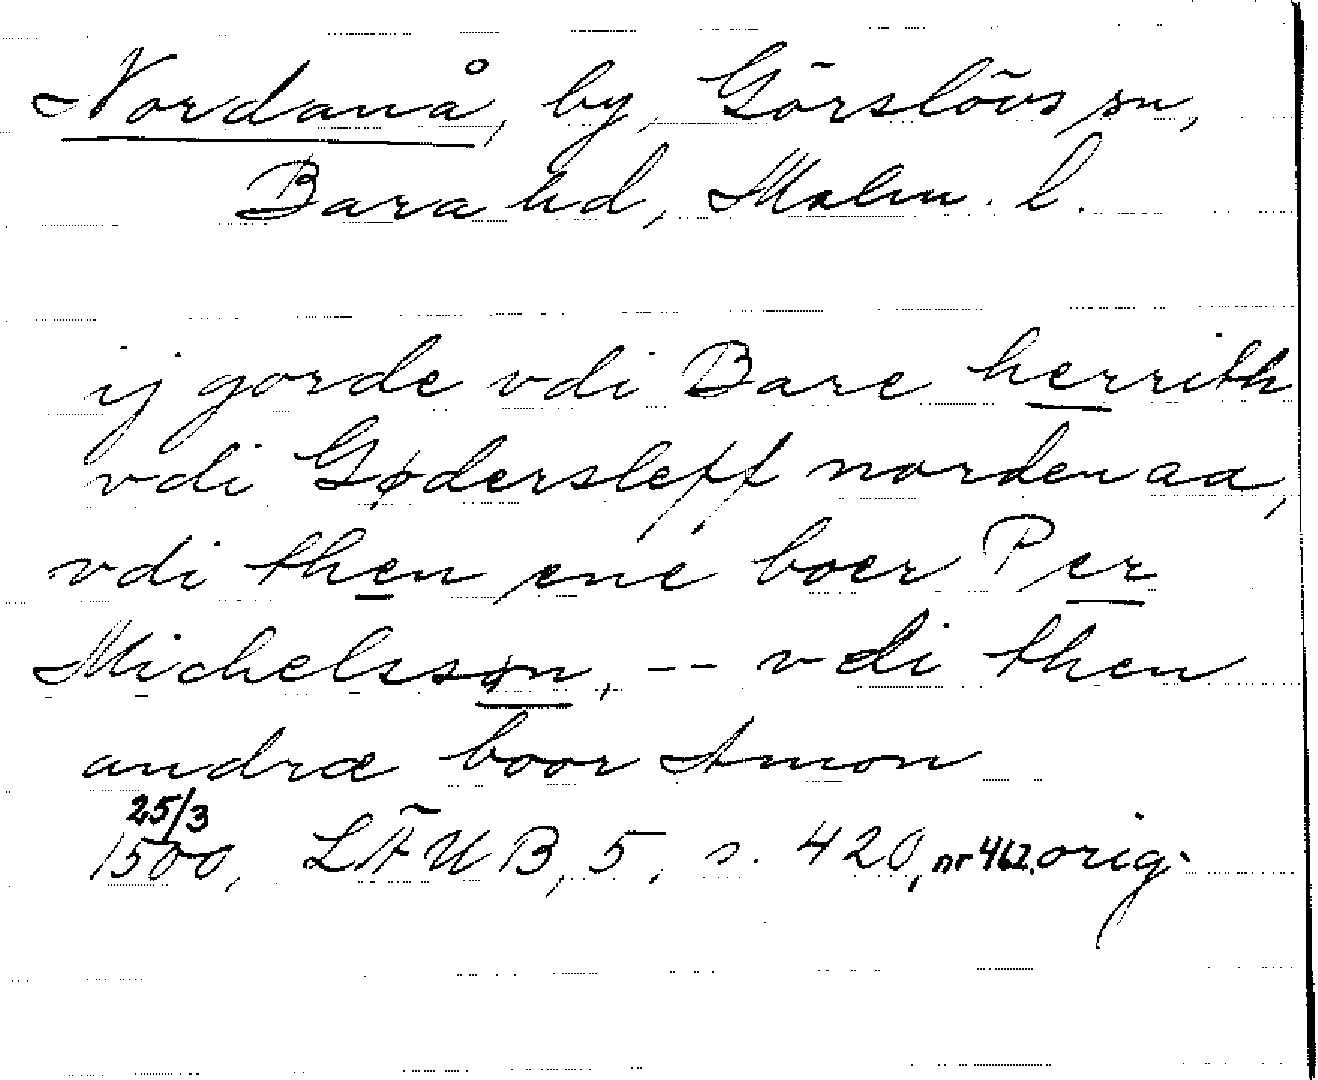 Nordanå, by, Görslövs sn,
Bara hd, Malm. l.
ij gorde vdi Bare herrith
vdi Gødersleff nordenaa,
vdi then ene boer Per
Michelssøn, -- vdi then
andræ boor Amon
25/3
1500, LÄUB, 5, s. 420, nr 462. orig.